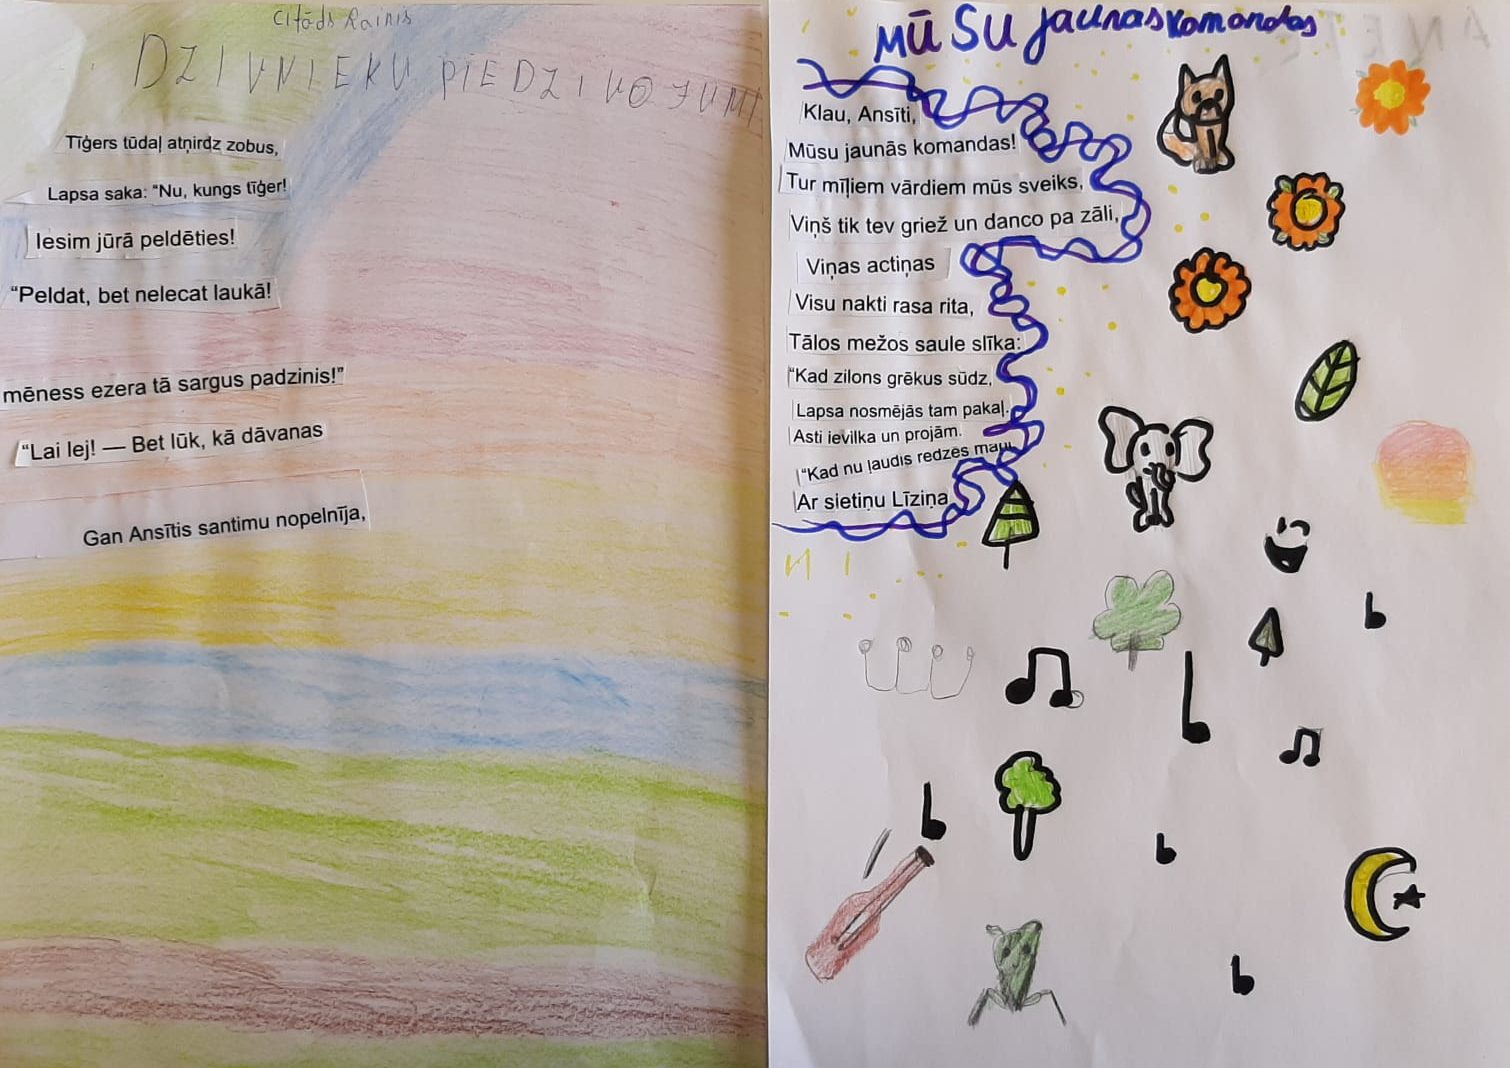 Citāds Rainis
DZIVNIEKU PIEDZIVOJUMI
Tīģers tūdaļ atņirdz zobus,
Lapsa saka: “Nu, kungs tīģer!
Iesim jūrā peldēties!
“Peldat, bet nelecat laukā!
mēness ezera tā sargus padzinis!”
“Lai lej! — Bet lūk, kā dāvanas
Gan Ansītis santimu nopelnīja,
MŪSU jaunas komandas
Klau, Ansīti,
Mūsu jaunās komandas!
Tur mīļiem vārdiem mūs sveiks,
Viņš tik tev griež un danco pa zāli,
Viņas actiņas
Visu nakti rasa rita,
Tālos mežos saule slīka:
“Kad zilons grēkus sūdz,
Lapsa nosmējās tam pakaļ.
Asti ievilka un projām.
“Kad nu ļaudis redzēs
Ar sietiņu Līziņa